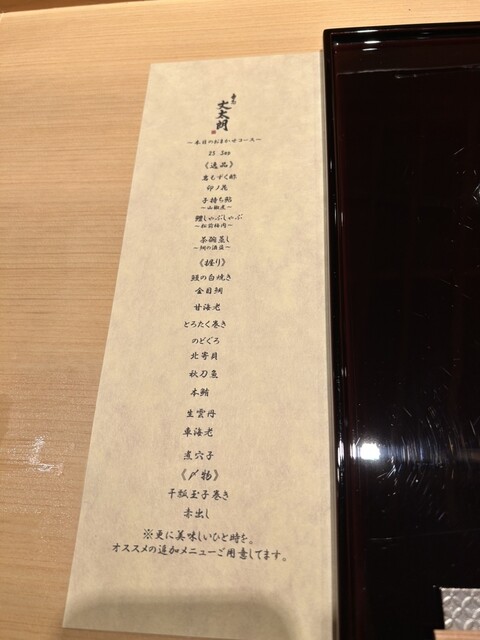 丈太朗
～本日のおまかせコース～
《逸品》
岩もずく酢
卯ノ花
子持ち鮎
～山椒煮～
鰹しゃぶしゃぶ
～松前梅肉～
茶碗蒸し
～鯛の酒盗～
《握り》
鰻の白焼き
金目鯛
甘海老
とろたく巻き
のどぐろ
北寄貝
秋刀魚
本鮪
生雲丹
車海老
煮穴子
《〆物》
干瓢玉子巻き
赤出し
※更に美味しいひと時を。
オススメの追加メニューご用意してます。